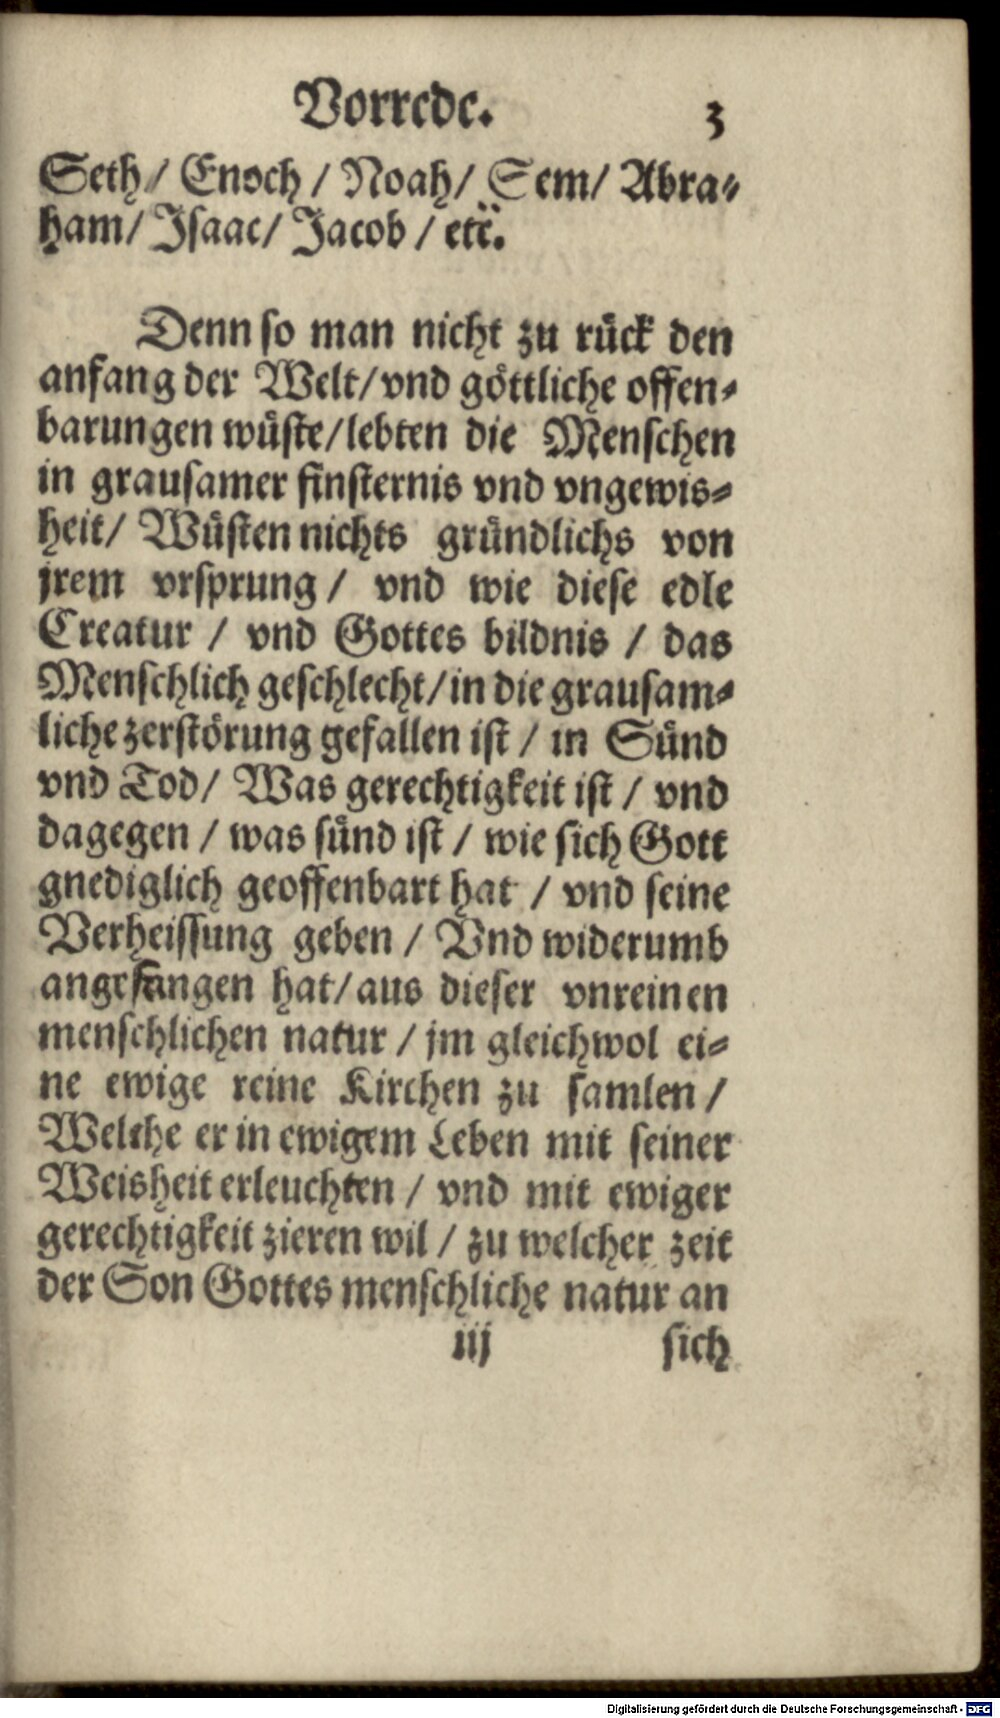 Vorrede. 3
Seth/ Enoch / Noah/ Sem/ Abra-
ham/ Isaac/ Jacob / etc̈.
Denn so man nicht zu rück den
anfang der Welt/ vnd göttliche offen-
barungen wüste/ lebten die Menschen
in grausamer finsternis vnd vngewis-
heit/ Wüsten nichts gründlichs von
jrem vrsprung / vnd wie diese edle
Creatur / vnd Gottes bildnis / das
Menschlich geschlecht/ in die grausam-
liche zerstörung gefallen ist / in Sünd
vnd Tod/ Was gerechtigkeit ist / vnd
dagegen / was sünd ist / wie sich Gott
gnediglich geoffenbart hat / vnd seine
Verheissung geben / Vnd widerumb
angefangen hat/ aus dieser vnreinen
menschlichen natur / jm gleichwol ei-
ne ewige reine Kirchen zu samlen /
Welche er in ewigem Leben mit seiner
Weisheit erleuchten / vnd mit ewiger
gerechtigkeit zieren wil / zu welcher zeit
der Son Gottes menschliche natur an
iij sich
Digitalisierung gefördert durch die Deutsche Forschungsgemeinschaft - DFG